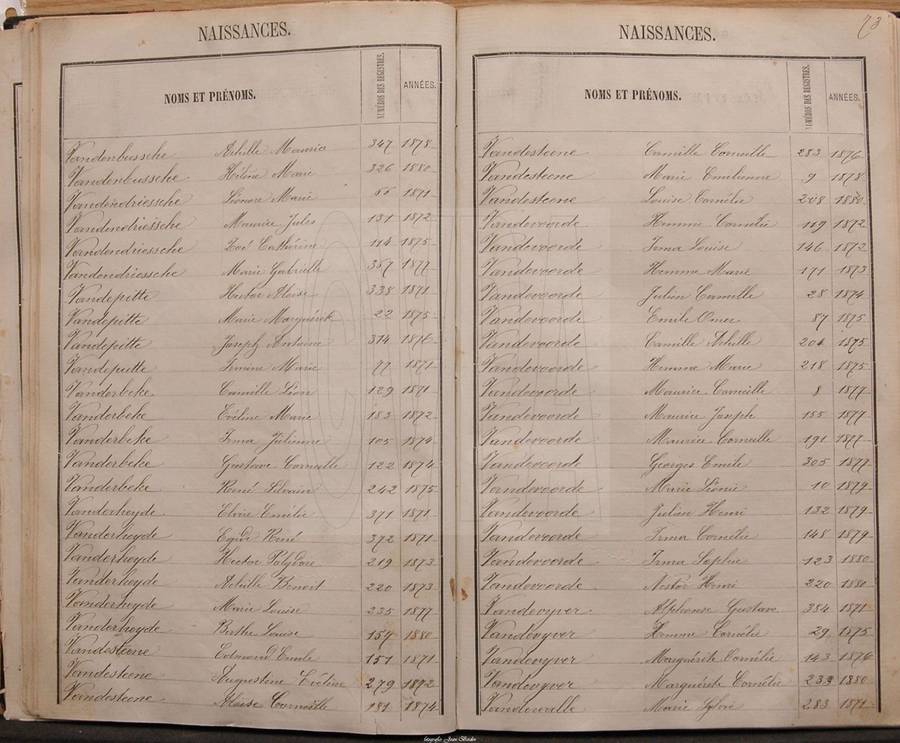 NAISSANCES.
NOMS ET PRÉNOMS. NUMÉROS DES REGISTRES. ANNÉES.
Vandenbussche Achille Maria 347 1878
Vandenbussche Héloïse Marie 326 1880
Vandendriessche Léonore Marie 66 1871
Vandendriessche Maurice Jules 131 1872
Vandendriessche Zoé Catherine 114 1875
Vandendriessche Marie Gabrielle 367 1877
Vandepitte Hector Aloïse 338 1871
Vandepitte Marie Marguérite 22 1875
Vandepitte Joseph Antoine 374 1876
Vandeputte Marie 77 1871
Vanderbeke Camille Léon 129 1871
Vanderbeke Eveline Marie 183 1872
Vanderbeke Irma Julienne 105 1874
Vanderbeke Gustave Corneille 122 1874
Vanderbeke René Silvain 242 1875
Vanderheyde Elvire Emélie 371 1871
Vanderheyde Egide René 372 1871
Vanderheyde Hector Polydore 219 1873
Vanderheyde Achille Benoit 220 1873
Vanderheyde Marie Louise 235 1877
Vanderheyde Berthe Louise 157 1880
Vandesteene Edmond Emile 151 1871
Vandesteene Augustine Eveline 279 1872
Vandesteene Aloïse Corneille 181 1874
73
NAISSANCES.
NOMS ET PRÉNOMS. NUMÉROS DES REGISTRES. ANNÉES.
Vandesteene Camille Corneille 283 1876
Vandesteene Marie Emilienne 9 1878
Vandesteene Louise Cornélie 208 1880
Vandevoorde Hemma Cornélie 119 1872
Vandevoorde Irma Louise 146 1872
Vandevoorde Hemma Marie 171 1873
Vandevoorde Julien Camille 28 1874
Vandevoorde Emile Omer 87 1875
Vandevoorde Camille Achille 204 1875
Vandevoorde Hemma Marie 218 1875
Vandevoorde Maurice Camille 8 1877
Vandevoorde Maurice Joseph 155 1877
Vandevoorde Maurice Corneille 191 1877
Vandevoorde Georges Emile 305 1877
Vandevoorde Marie Léonie 10 1879
Vandevoorde Julien Henri 132 1879
Vandevoorde Irma Cornélie 148 1879
Vandevoorde Irma Sophie 123 1880
Vandevoorde Nestor Henri 220 1880
Vandevyver Alphonse Gustave 354 1871
Vandevyver Hemma Cornélie 29 1875
Vandevyver Marguérite Cornélie 143 1876
Vandevyver Marguérite Cornélie 233 1880
Vandewalle Marie Sylvie 283 1871
fotografie Jean Bardin